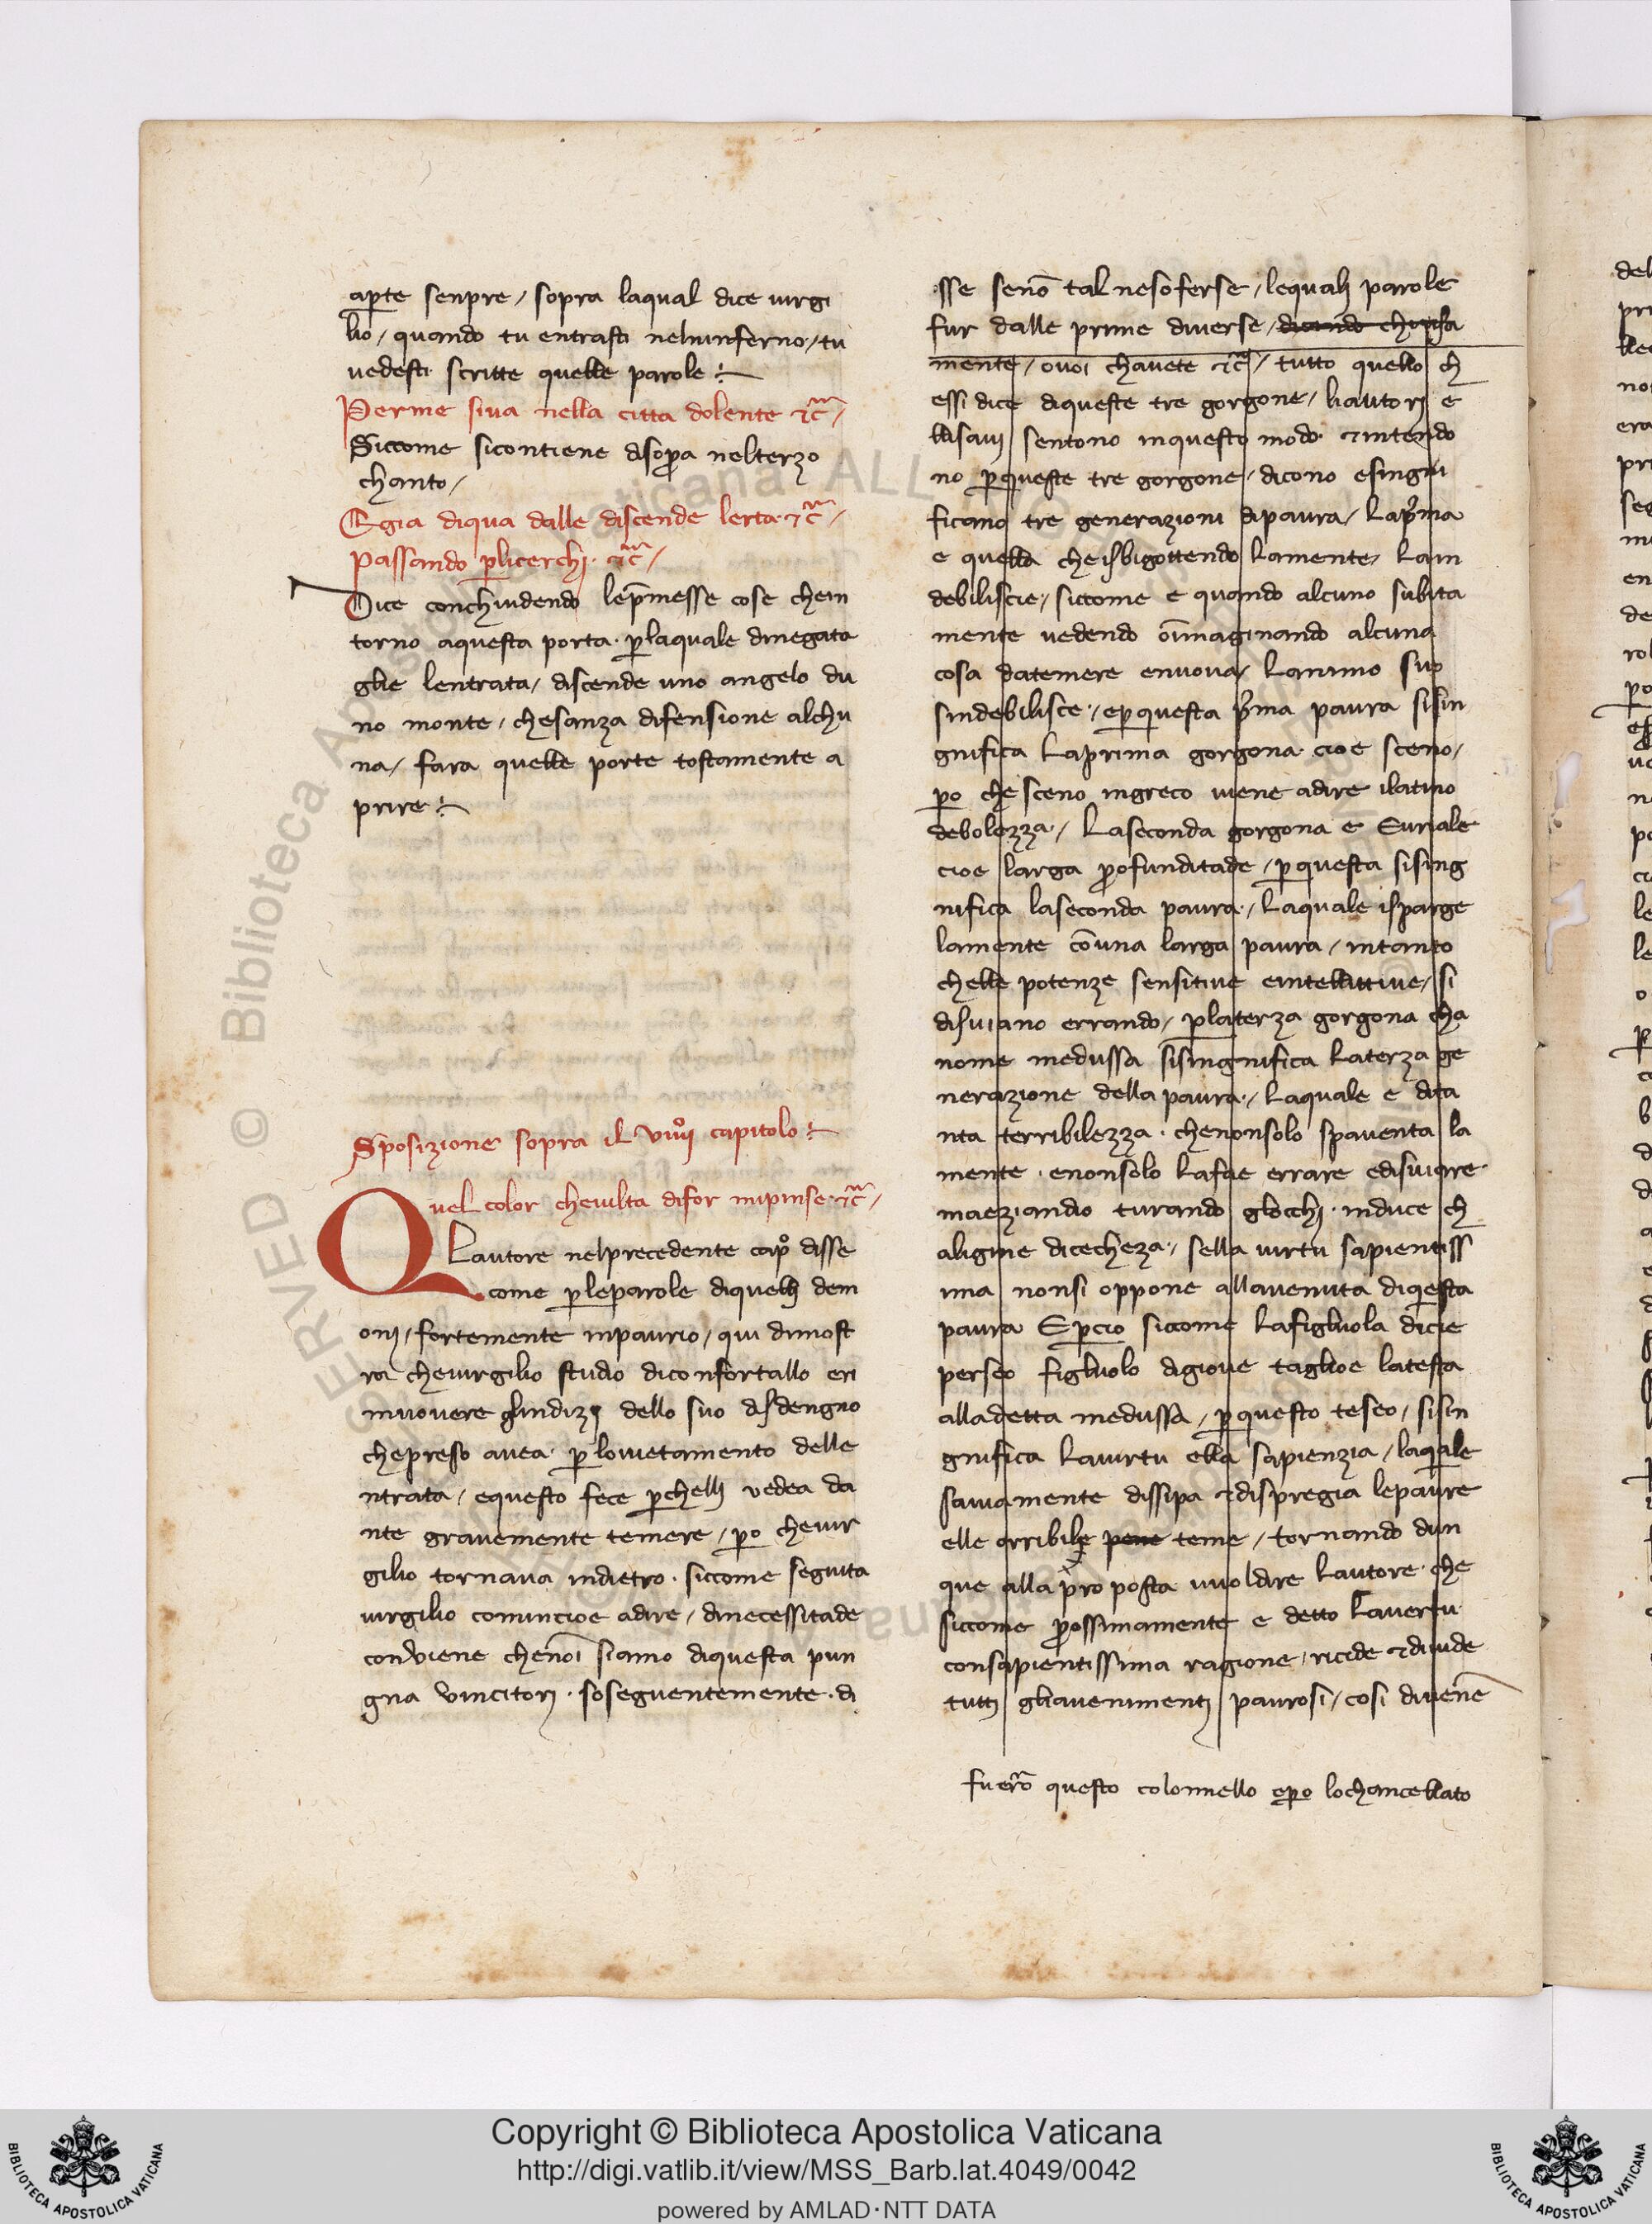 aperte senpre / sopra laqual dice uirgi
lio / quando tu entrasti nelninferno / tu
uedesti scritte quelle parole
Perme siua nella citta dolente &c̃ /
Siccome sicontiene disopra nelterzo
chanto /
Egia diqua dalle discende lerta · &c̃ /
Passando p̱licerchi · &c̃ /
Dice conchiudendo lep̃messe cose chein
torno aquesta porta · p̱laquale dinegata
glie lentrata / discende uno angelo du
no monte / chesanza difensione alchu
na / fara quelle porte tostamente a
prire
Sposizione sopra il viiij° capitolo
Quel color cheuilta difor mipinse · &c̃ /
Lautore nelprecedente cap° disse
come p̱leparole diquelli dem
onj / fortemente inpaurio / qui dimost
ra cheuirgilio studio diconfortallo eri
muouere glindizj dello suo disdengno
chepreso auea · p̱louietamento delle
ntrata / equesto fece p̱chelli vedea da
nte grauemente temere / p̱o cheuir
gilio tornaua indietro · siccome seguita
uirgilio comincioe adire / dinecessitade
conviene chenoi siamo diquesta pun
gna vincitorj · soseguentemente · di
sse senõ tal nesoferse / lequalj parole
fur dalle prime diuerse / dicendo chopisa
mente / ouoi chauete &c̃ / tutto quello ch
essi dice diqueste tre gorgone / liautorj e
llisauj sentono inquesto modo · &intendo
no p̱queste tre gorgone / dicono esingni
ficano tre generazioni dipaura / Lap̃ima
e quella cheisbigottendo Lamente / Lain
debiliscie / siccome e quando alcuno subita
mente uedendo oĩmaginando alcuna
cosa datemere enuoua / Lanimo suo
sindebilisce / ep̱questa p̃ima paura sisin
gnifica Laprima gorgona cioe sceno /
p̱o che sceno ingreco uiene adire ilatino
debolezza / Laseconda gorgona e Euriale
cioe larga profunditade / p̱questa sising
nifica laseconda paura / Laquale isparge
lamente cõuna larga paura / intanto
chelle potenze sensitiue eintellittiue / si
disuiano errando / p̱laterza gorgona cha
nome medussa sisingnifica Laterza ge
nerazione della paura / Laquale e dita
nta terribilezza · chenonsolo spauenta la
mente · enonsolo Lafae errare edisuiare
maeziandio turando glocchi · induce ch
aligine dicecheza / sella uirtu sapientiss
ima nonsi oppone allauenuta diquesta
paura Ep̱cio siccome Lafigliuola dicie
perseo figliuolo digioue taglioe latesta
alladetta medussa / p̱questo teseo / sisin
gnifica Lauirtu ella sapienzia / laquale
sauiamente dissipa &dispregia lepaure
elle orribile pene teme / tornando dun
que alla proposta uuoldire Lautore · che
siccome prossimamente e detto Lauertu
consapientissima ragione / ricide &diuide
tuttj gliauenimentj paurosi / cosi diuene
fuerõ questo colonnello ep̱o lochancellato
del
Copyright © Biblioteca Apostolica Vaticana
http://digi.vatlib.it/view/MSS_Barb.lat.4049/0042
powered by AMLAD·NTT DATA
BIBLIOTECA APOSTOLICA VATICANA
BIBLIOTECA APOSTOLICA VATICANA